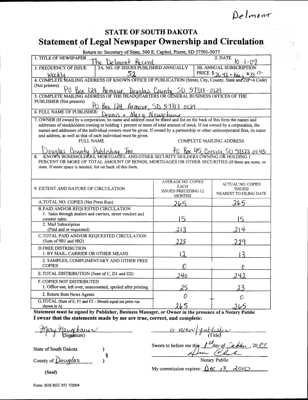 Delmont
STATE OF SOUTH DAKOTA
Statement of Legal Newspaper Ownership and Circulation
Return to: Secretary of State, 500 E. Capitol, Pierre, SD 57501-5077
1. TITLE OF NEWSPAPER The Delmont Record
2. DATE 10-1-07
3. FREQUENCY OF ISSUE Weekly
3A. NO. OF ISSUES PUBLISHED ANNUALLY 52
3B. ANNUAL SUBSCRIPTION PRICE
4. COMPLETE MAILING ADDRESS OF KNOWN OFFICE OF PUBLICATION (Street, City, County, State and ZIP+4 Code)
(Not printers) PO Box 129 Armour, Douglas County SD 57313-0129
5. COMPLETE MAILING ADDRESS OF THE HEADQUARTERS OF GENERAL BUSINESS OFFICES OF THE
PUBLISHER (Not printers) PO Box 129 Armour, SD 57313-0129
6. FULL NAME OF PUBLISHER:
7. OWNER (If owned by a corporation, its name and address must be stated and list on the back of this form the names and
addresses of stockholders owning or holding 1 percent or more of total amount of stock. If not owned by a corporation, the
names and addresses of the individual owners must be given. If owned by a partnership or other unincorporated firm, its name
and address, as well as that of each individual must be given.
FULL NAME COMPLETE MAILING ADDRESS
Douglas County Publishing, Inc.
8. KNOWN BONDHOLDERS, MORTGAGES, AND OTHER SECURITY HOLDERS OWNING OR HOLDING 1
PERCENT OR MORE OF TOTAL AMOUNT OF BONDS, MORTGAGES OR OTHER SECURITIES (If there are none, so
state. If more space is needed, list on back of this form.
9. EXTENT AND NATURE OF CIRCULATION
AVERAGE NO. COPIES EACH ISSUES PRECEDING 12 MONTHS
ACTUAL NO. COPIES ISSUED NEAREST TO FILING DATE
A. TOTAL NO. COPIES (Net Press Run) 265 265
B. PAID AND/OR REQUESTED CIRCULATION
1. Sales through dealers and carriers, street vendors and
counter sales. 15 15
2. Mail Subscription
(Paid and/or requested) 213 214
C. TOTAL PAID AND/OR REQUESTED CIRCULATION
(Sum of 9B1 and 9B2) 228 229
D. FREE DISTRIBUTION
1. BY MAIL, CARRIER OR OTHER MEANS 12 13
2. SAMPLES, COMPLIMENTARY AND OTHER FREE
COPIES 0 0
E. TOTAL DISTRIBUTION (Sum of C, D1 and D2) 240 242
F. COPIES NOT DISTRIBUTED
1. Office use, left over, unaccounted, spoiled after printing 25 23
2. Return from News Agents 0 0
G. TOTAL (Sum of E, F1 and F2 - Should equal net press run
shown in A) 265 265
Statement must be signed by Publisher, Business Manager, or Owner in the presence of a Notary Public
I swear that the statements made by me are true, correct, and complete:
(Signature) (Title)
State of South Dakota )
) §
County of Douglas )
Sworn to before me this 1st day of October, 2007
Notary Public
(Seal)
My commission expires: Dec 13, 2010
Form: SOS REC 051 7/2004